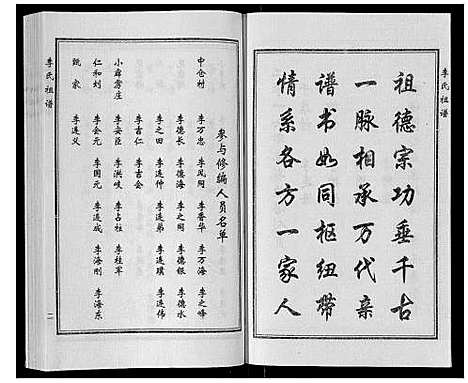 李氏祖谱
祖德宗功垂千古
一脉相承万代亲
谱书如同枢纽带
情系各方一家人
参与修编人员名单
中仓村 李万忠 李凤阁 李香华 李万海 李之峰
李德长 李德海 李之国 李德银 李德水
李之田 李连仲 李连弟 李连璞 李连伟
李吉仁 李吉会
小辟雳庄 李安臣 李洪岐 李占柱 李桂军
仁和刘 李会元 李国元 李连成 李海刚 李海东
甄家 李连义
李氏祖谱
二